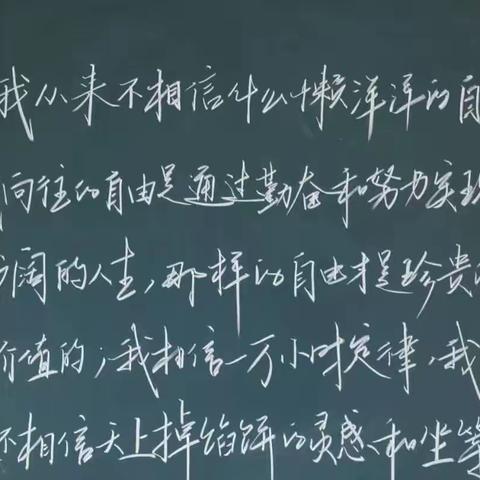 我从来不相信什么懒洋洋的自
向往的自由是通过勤奋和努力实现
阔的人生,那样的自由才是珍贵
价值的;我相信一万小时定律,我
不相信天上掉馅饼的灵感和坐等